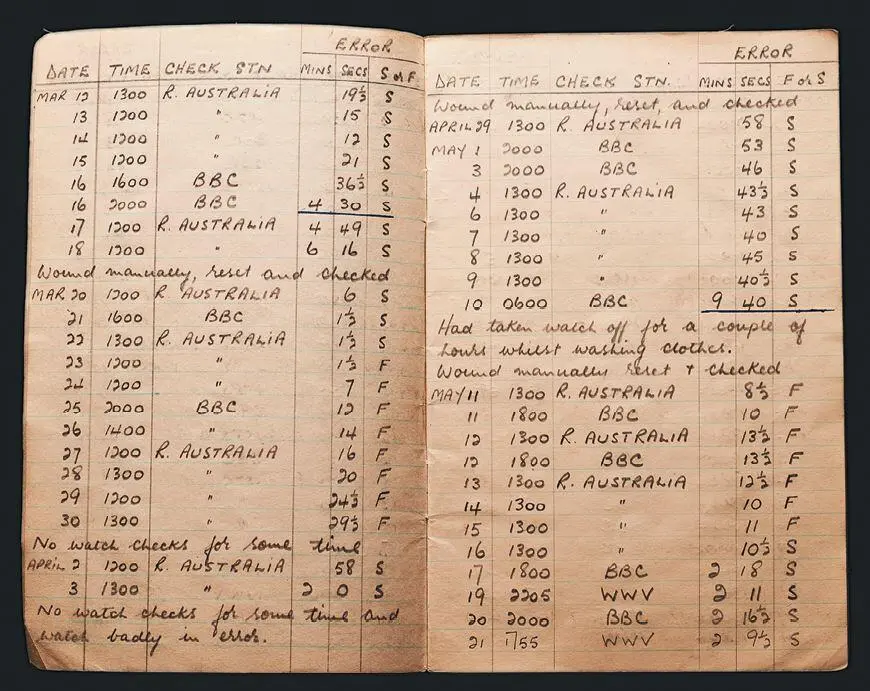 ERROR
DATE TIME CHECK STN MINS SECS S or F
MAR 12 1300 R. AUSTRALIA 19½ S
13 1200 " 15 S
14 1200 " 12 S
15 1200 " 21 S
16 1600 BBC 36½ S
16 2000 BBC 4 30 S
17 1200 R. AUSTRALIA 4 49 S
18 1200 " 6 16 S
Wound manually, reset and checked
MAR 20 1200 R. AUSTRALIA 6 S
21 1600 BBC 1½ S
22 1300 R. AUSTRALIA 1½ S
23 1200 " 1½ F
24 1200 " 7 F
25 2000 BBC 12 F
26 1400 " 14 F
27 1200 R. AUSTRALIA 16 F
28 1300 " 20 F
29 1200 " 24½ F
30 1300 " 29½ F
No watch checks for some time
APRIL 2 1200 R. AUSTRALIA 58 S
3 1300 " 2 0 S
No watch checks for some time and
watch badly in error.
ERROR
DATE TIME CHECK STN. MINS SECS F or S
Wound manually, reset, and checked
APRIL 29 1300 R. AUSTRALIA 58 S
MAY 1 2000 BBC 53 S
3 2000 BBC 46 S
4 1300 R. AUSTRALIA 43½ S
6 1300 " 43 S
7 1300 " 40 S
8 1300 " 45 S
9 1300 " 40½ S
10 0600 BBC 9 40 S
Had taken watch off for a couple of
hours whilst washing clothes.
Wound manually reset + checked
MAY 11 1300 R. AUSTRALIA 8½ F
11 1800 BBC 10 F
12 1300 R. AUSTRALIA 13½ F
12 1800 BBC 13½ F
13 1300 R. AUSTRALIA 12½ F
14 1300 " 10 F
15 1300 " 11 F
16 1300 " 10½ S
17 1800 BBC 2 18 S
19 2205 WWV 2 11 S
20 2000 BBC 2 16½ S
21 1755 WWV 2 9½ S